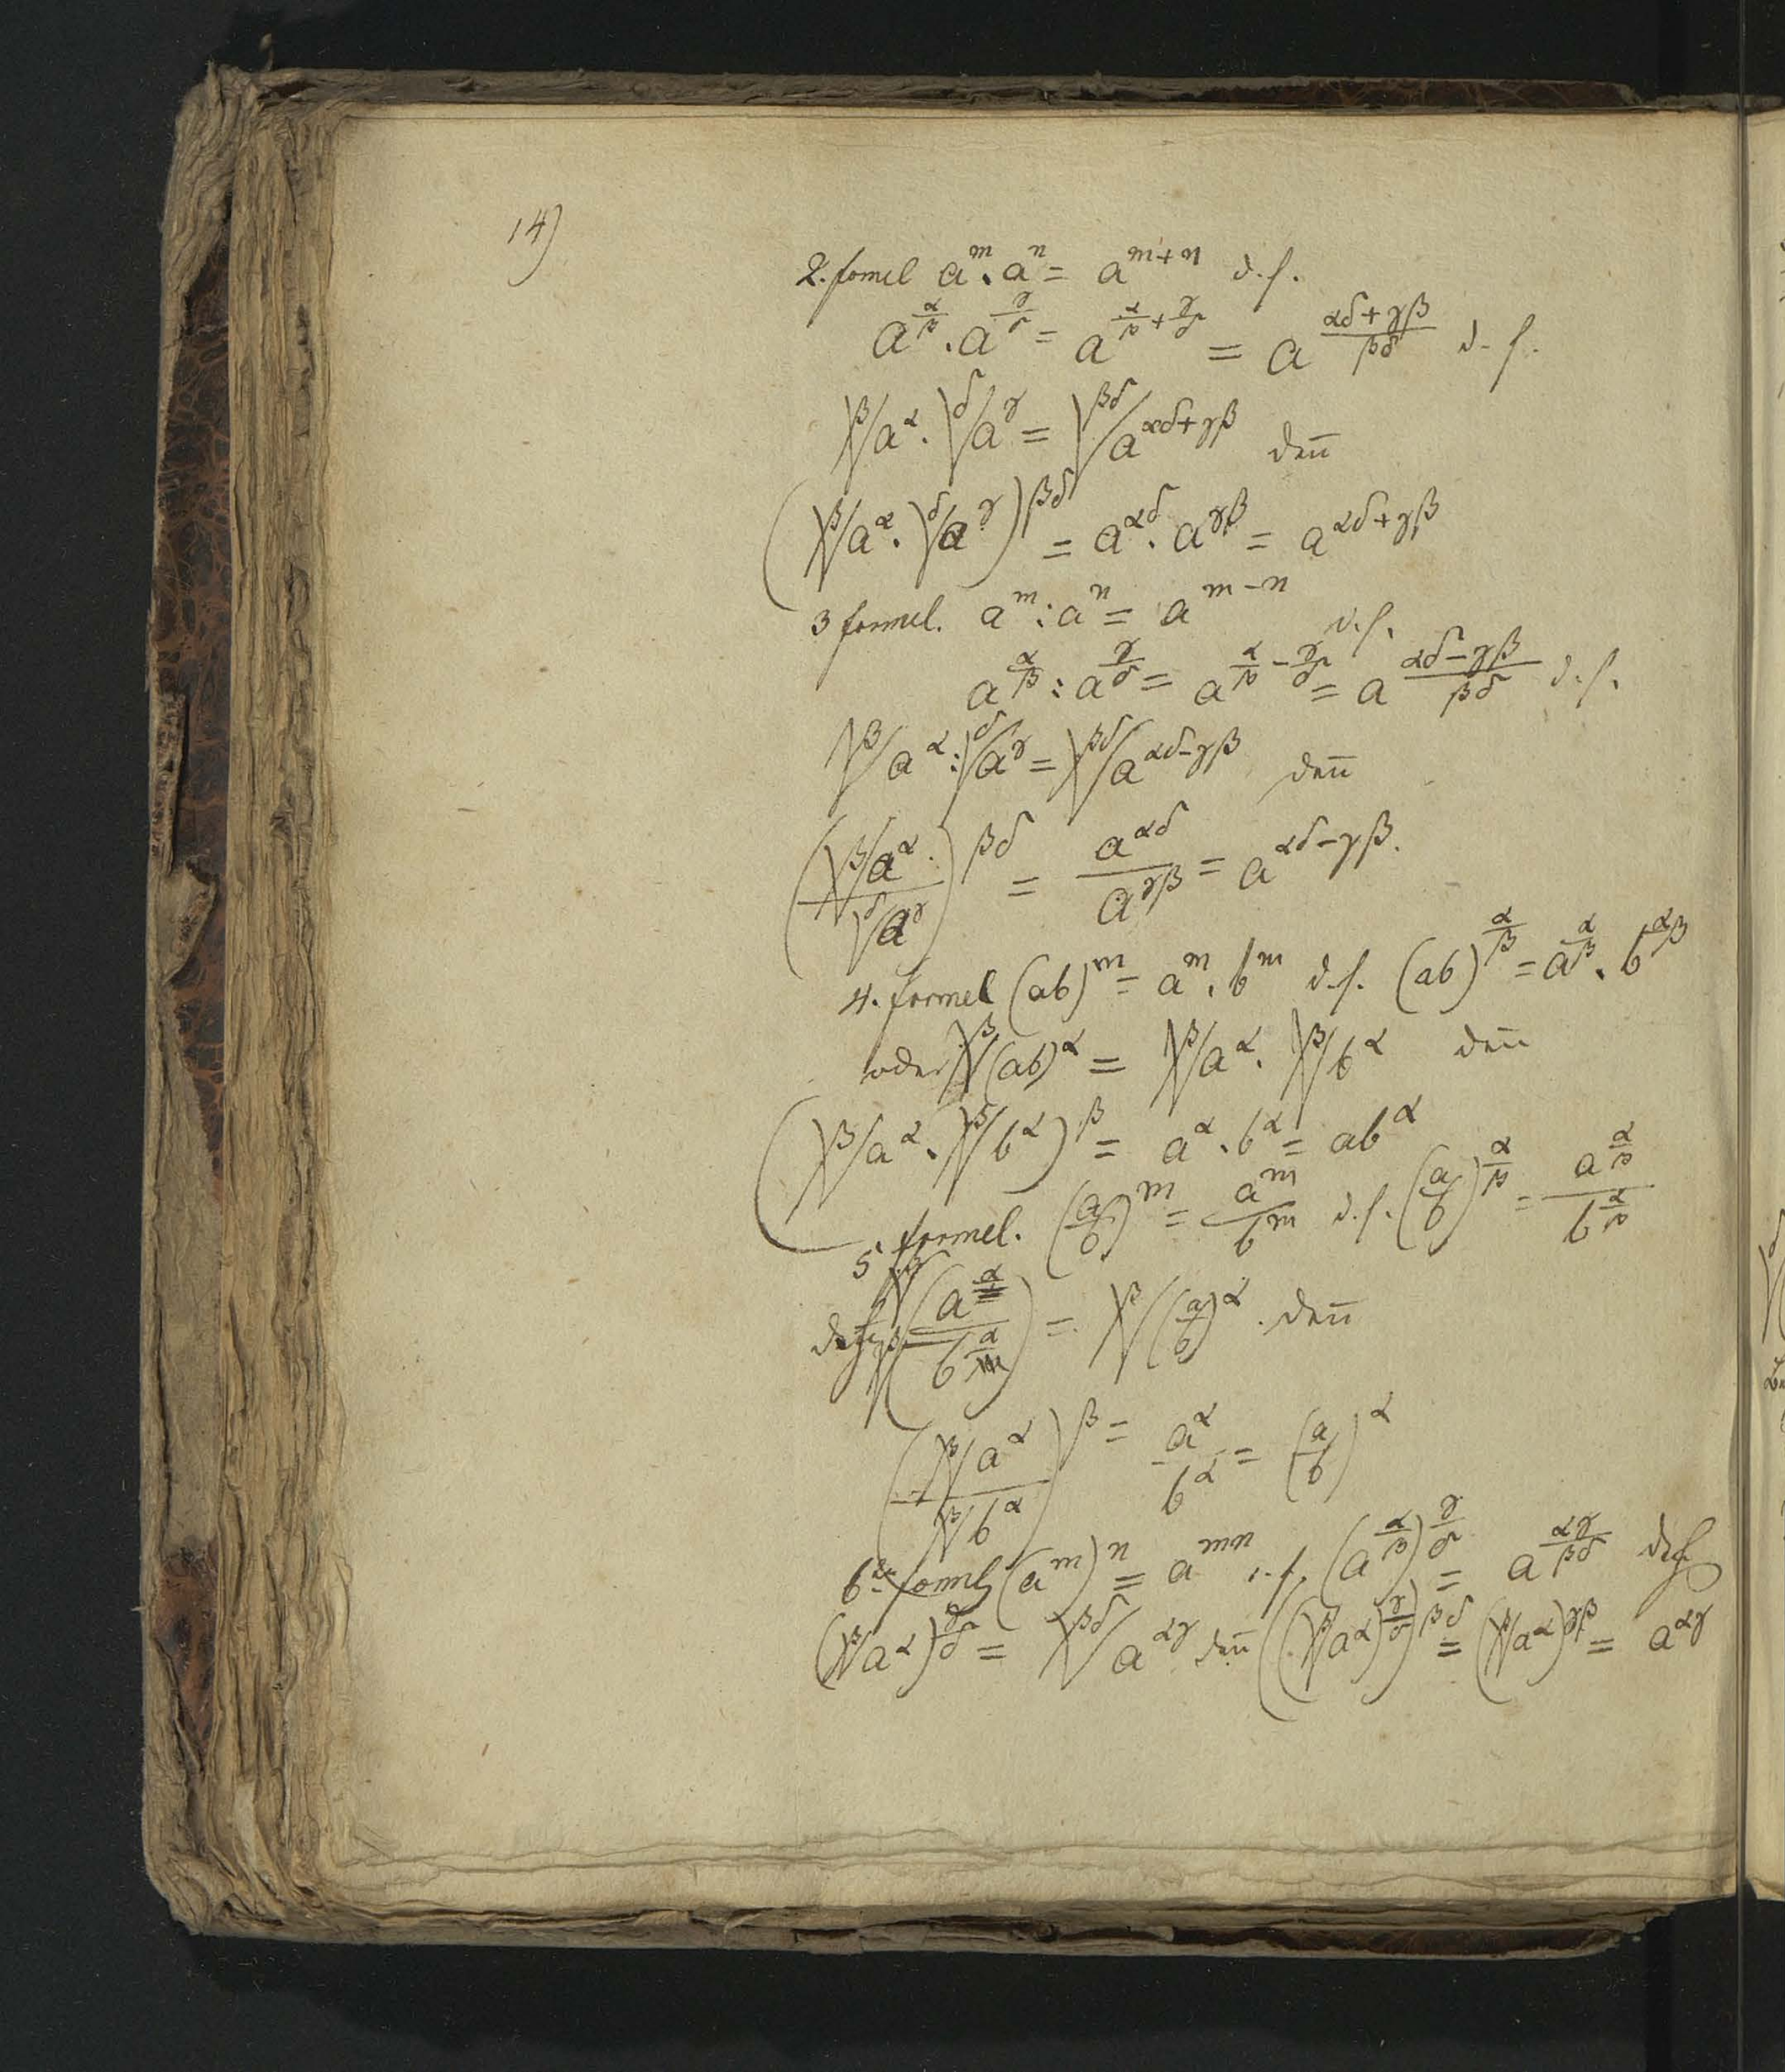 14)
2. formel a^m . a^n = a^{m+n} d. f.
a^{α/β} . a^{γ/δ} = a^{α/β + γ/δ} = a^{(αδ+γβ)/βδ} d. f.
√^β a^α . √^δ a^γ = √^{βδ} a^{αδ+γβ} den̄
(√^β a^α . √^δ a^γ)^{βδ} = a^{αδ} . a^{γβ} = a^{αδ+γβ}
3 formel. a^m : a^n = a^{m-n} d. f.
a^{α/β} : a^{γ/δ} = a^{α/β - γ/δ} = a^{(αδ-γβ)/βδ} d. f.
√^β a^α : √^δ a^γ = √^{βδ} a^{αδ-γβ} den̄
(√^β a^α / √^δ a^γ)^{βδ} = a^{αδ} / a^{γβ} = a^{αδ-γβ}.
4. formel (ab)^m = a^m . b^m d. f. (ab)^{α/β} = a^{α/β} . b^{α/β}
oder √^β (ab)^α = √^β a^α . √^β b^α den̄
(√^β a^α . √^β b^α)^β = a^α . b^α = ab^α
5 formel. (a/b)^m = a^m / b^m d. f. (a/b)^{α/β} = a^{α/β} / b^{α/β}
√^β (a^α / b^α) = √^β (a/b)^α . den̄
(√^β a^α / √^β b^α)^β = a^α / b^α = (a/b)^α
6 (a^m)^n = a^{mn} d. f. (a^{α/β})^{γ/δ} = a^{αγ/βδ}
(√^β a^α)^{γ/δ} = √^{βδ} a^{αγ} den̄ ((√^β a^α)^{γ/δ})^{βδ} = (√^β a^α)^{γβ} = a^{αγ}